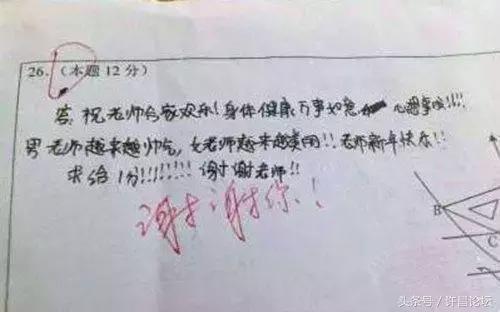 26.（本题12分）
答：祝老师合家欢乐！身体健康 万事如意 心想事成！！！！
男老师越来越帅气，女老师越来越美丽！！老师新年快乐！！
求给1分！！！！！！！！谢谢老师！！
谢谢你！
B
C
头条号/许昌论坛